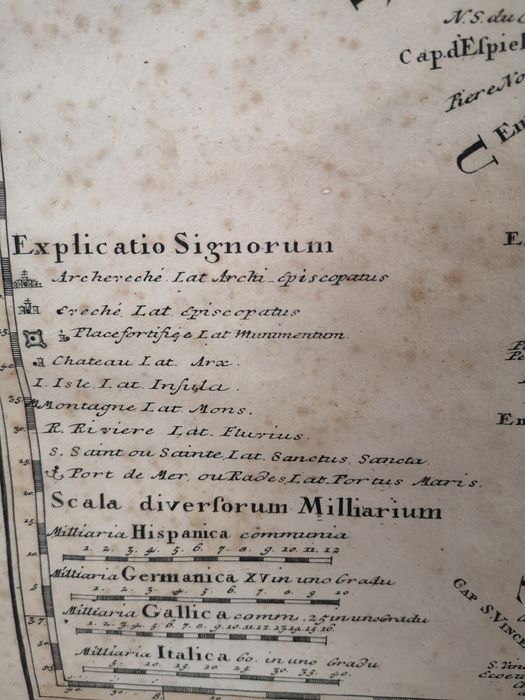 N.S. du
Cap. d'Espie
Piere No
U
En
Explicatio Signorum
Archeveché. Lat. Archi-Episcopatus
Eveché. Lat. Episcopatus
Place fortifiée Lat Munimentum.
Chateau. Lat. Arx.
I. Isle. Lat. Insula.
Montagne. Lat. Mons.
R. Riviere Lat. Fluvius.
S. Saint ou Sainte, Lat. Sanctus, Sancta.
Port de Mer, ou Rades, Lat. Portus Maris.
Scala diversorum Milliarium
Milliaria Hispanica communia
1. 2. 3. 4. 5. 6. 7. 8. 9. 10. 11. 12
Milliaria Germanica XV in uno Gradu
Milliaria Gallica comm. 25 in uno Gradu
1. 2. 3. 4. 5. 6. 7. 8. 9. 10. 11. 12. 13. 14. 15. 16.
Milliaria Italica 60. in uno Gradu
5. 10. 15. 20. 25. 30. 35. 40
Cap S. Vince